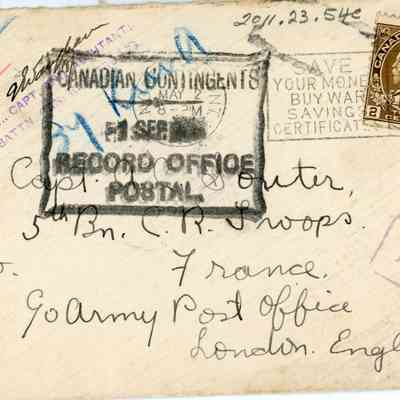 2011.23.54c
CAPT
CANADIAN CONTINGENTS
MAY
8 - PM
SEP
RECORD OFFICE
POSTAL
SAVE
YOUR MONEY
BUY WAR
SAVINGS
CERTIFICATES
CANADA
2 CE
Capt. Souter,
5th Bn. C. R. Troops.
France.
Go Army Post Office
London. Engl